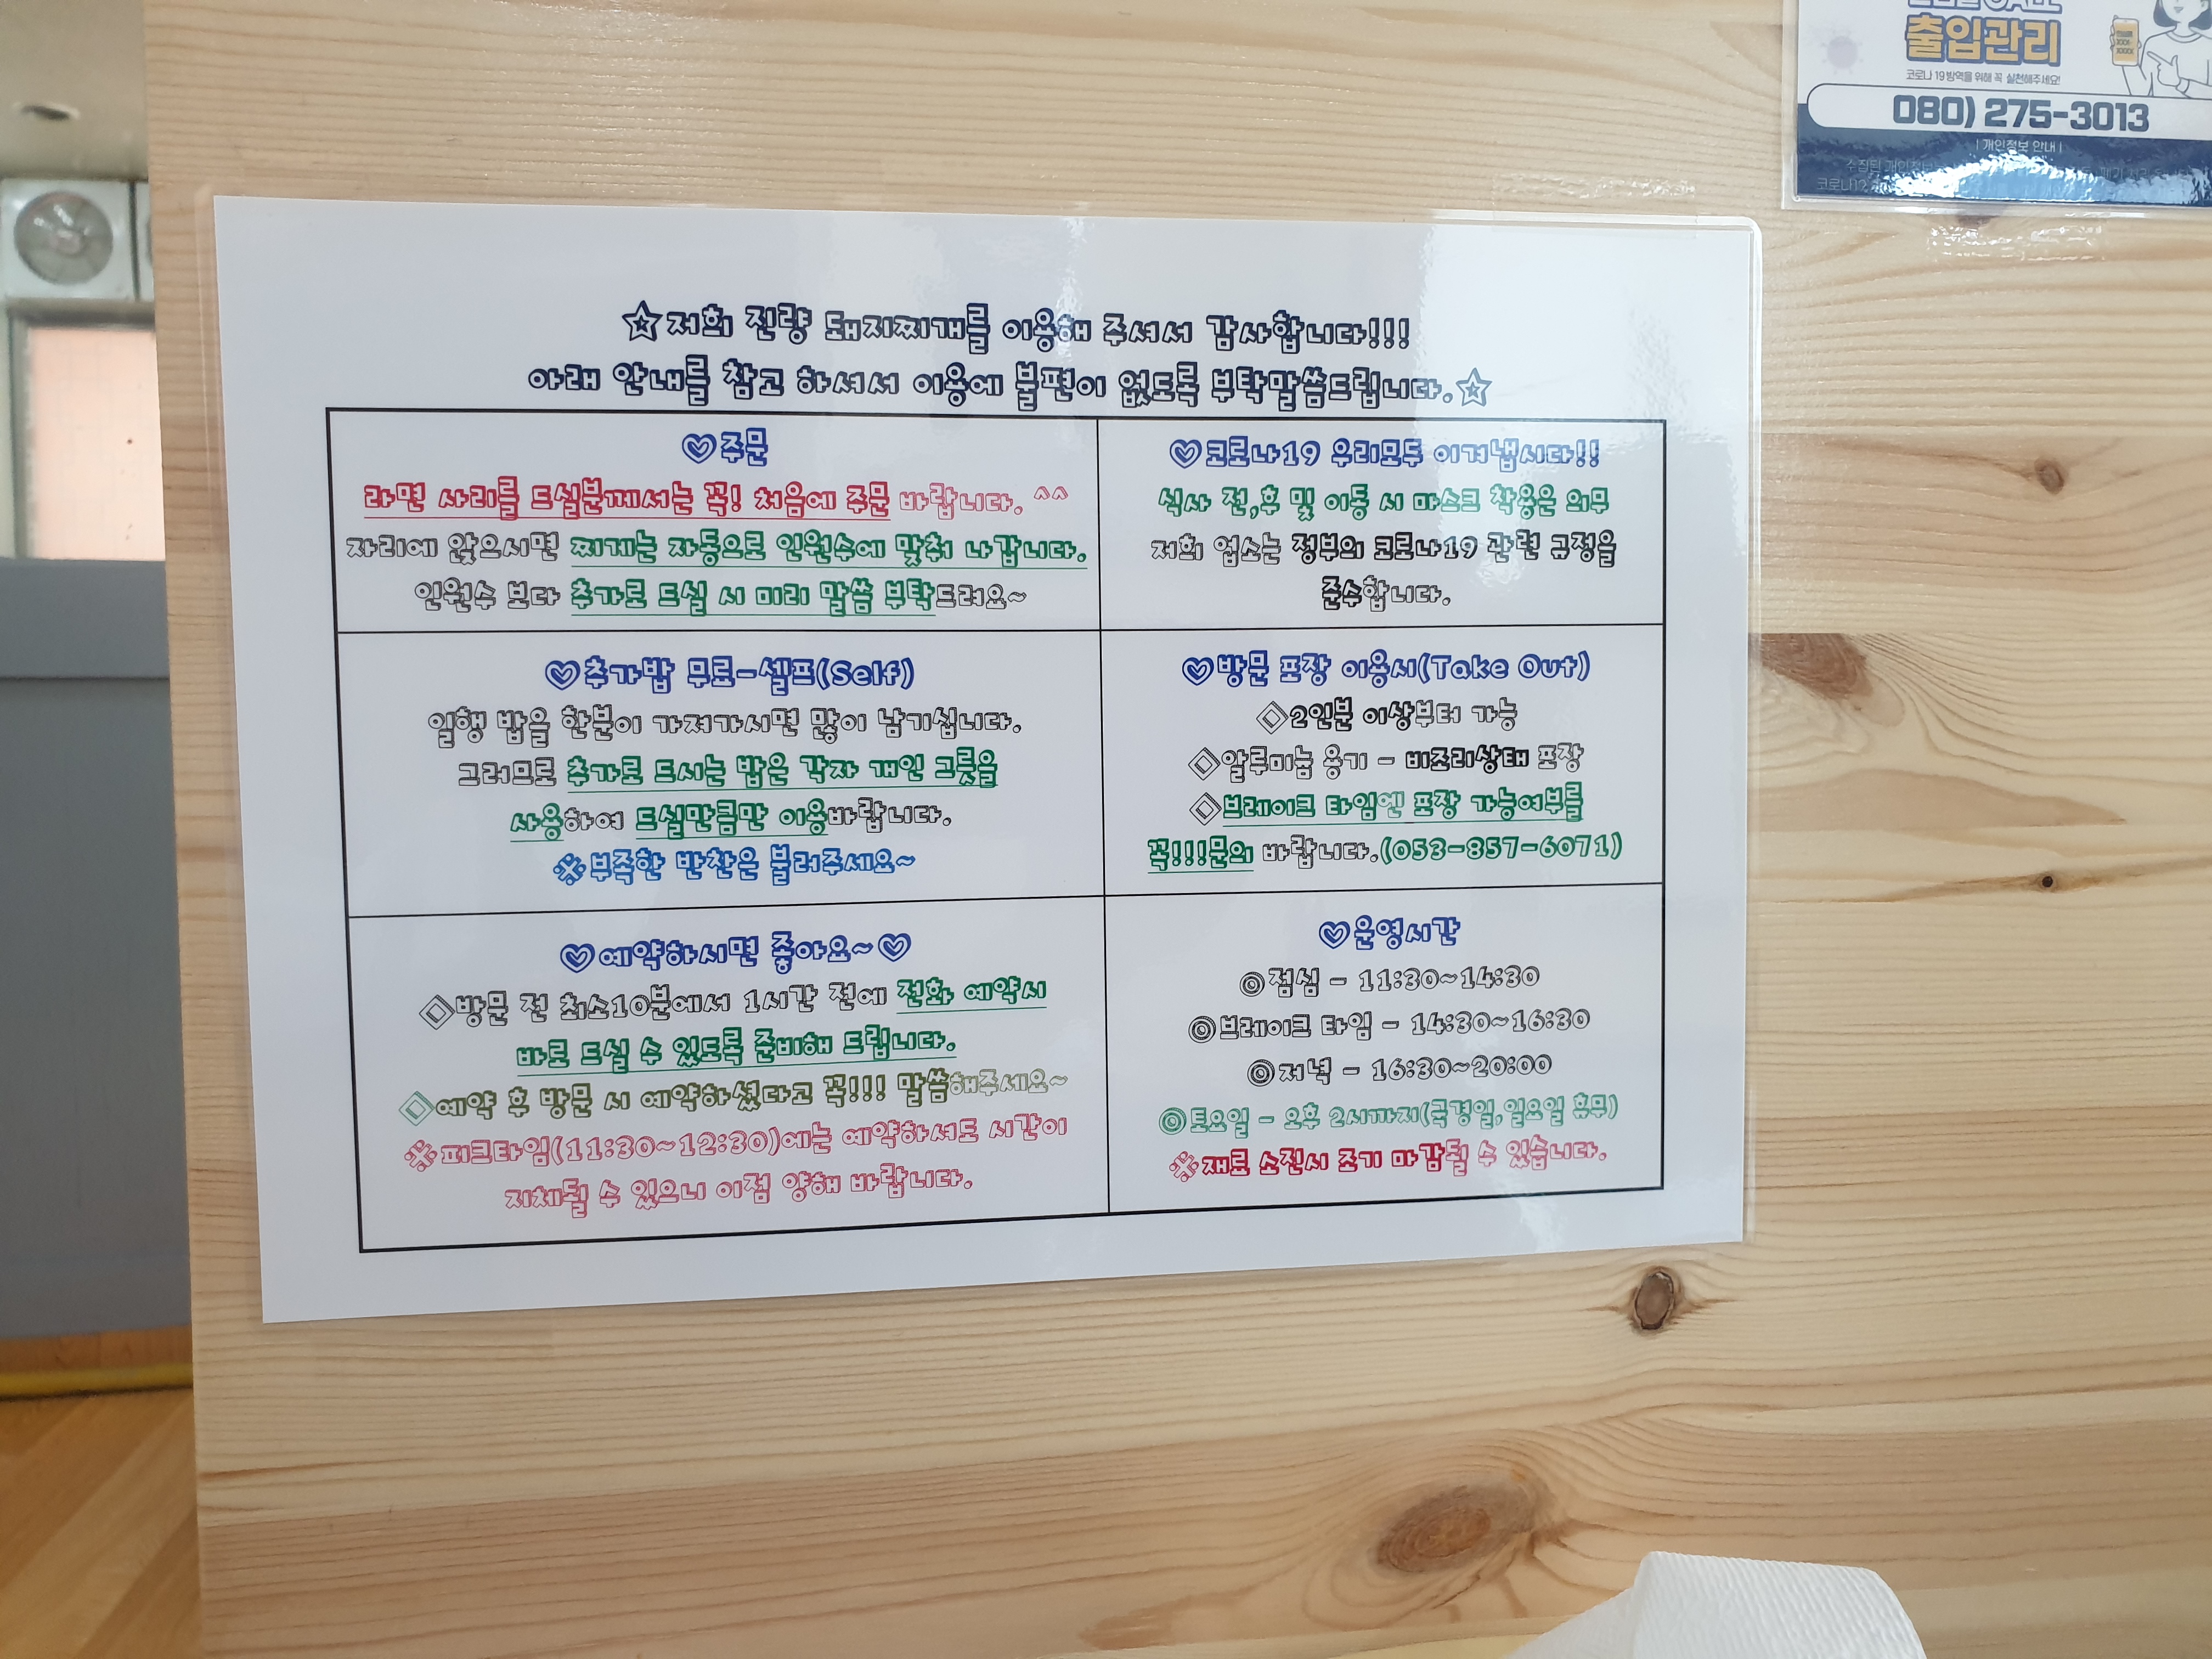 ☆저희 진량 돼지찌개를 이용해 주셔서 감사합니다!!!
아래 안내를 참고 하셔서 이용에 불편이 없도록 부탁말씀드립니다.☆
♡주문
라면 사리를 드실분께서는 꼭! 처음에 주문 바랍니다. ^^
자리에 앉으시면 찌개는 자동으로 인원수에 맞춰 나갑니다.
인원수 보다 추가로 드실 시 미리 말씀 부탁드려요~
♡코로나19 우리모두 이겨냅시다!!
식사 전,후 및 이동 시 마스크 착용은 의무
저희 업소는 정부의 코로나19 관련 규정을
준수합니다.
♡추가밥 무료-셀프(Self)
일행 밥을 한분이 가져가시면 많이 남기십니다.
그러므로 추가로 드시는 밥은 각자 개인 그릇을
사용하여 드실만큼만 이용바랍니다.
※부족한 반찬은 불러주세요~
♡방문 포장 이용시(Take Out)
◇2인분 이상부터 가능
◇알루미늄 용기 - 비조리상태 포장
◇브레이크 타임엔 포장 가능여부를
꼭!!!문의 바랍니다.(053-857-6071)
♡예약하시면 좋아요~♡
◇방문 전 최소10분에서 1시간 전에 전화 예약시
바로 드실 수 있도록 준비해 드립니다.
◇예약 후 방문 시 예약하셨다고 꼭!!! 말씀해주세요~
※피크타임(11:30~12:30)에는 예약하셔도 시간이
지체될 수 있으니 이점 양해 바랍니다.
♡운영시간
◎점심 - 11:30~14:30
◎브레이크 타임 - 14:30~16:30
◎저녁 - 16:30~20:00
◎토요일 - 오후 2시까지(국경일,일요일 휴무)
※재료 소진시 조기 마감될 수 있습니다.
출입관리
코로나 19 방역을 위해 꼭 실천해주세요!
080) 275-3013
| 개인정보 안내 |